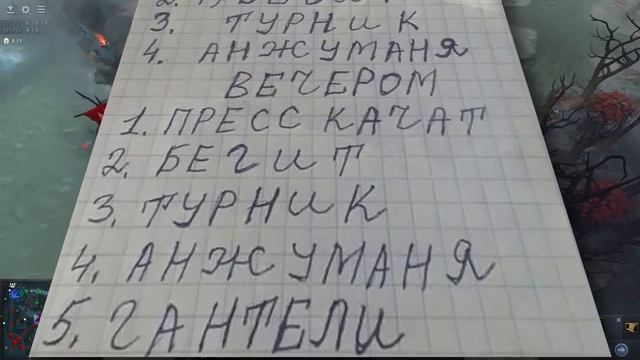 3. ТУРНИК
4. АНЖУМАНЯ
ВЕЧЕРОМ
1. ПРЕСС КАЧАТ
2. БЕГИТ
3. ТУРНИК
4. АНЖУМАНЯ
5. ГАНТЕЛИ